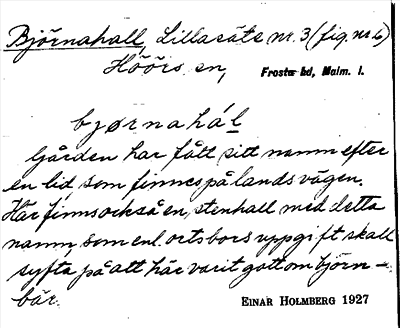 Björnahall, Lillasäte nr. 3 (fig. nr. 6)
Höörs sn, Frosta hd, Malm. l.
bjørnahál
Gården har fått sitt namn efter
en lid, som finnes på landsvägen.
Här finns också en stenhall med detta
namn, som enl. ortsbors uppgift skall
syfta på att här varit gott om björn-
bär.
EINAR HOLMBERG 1927